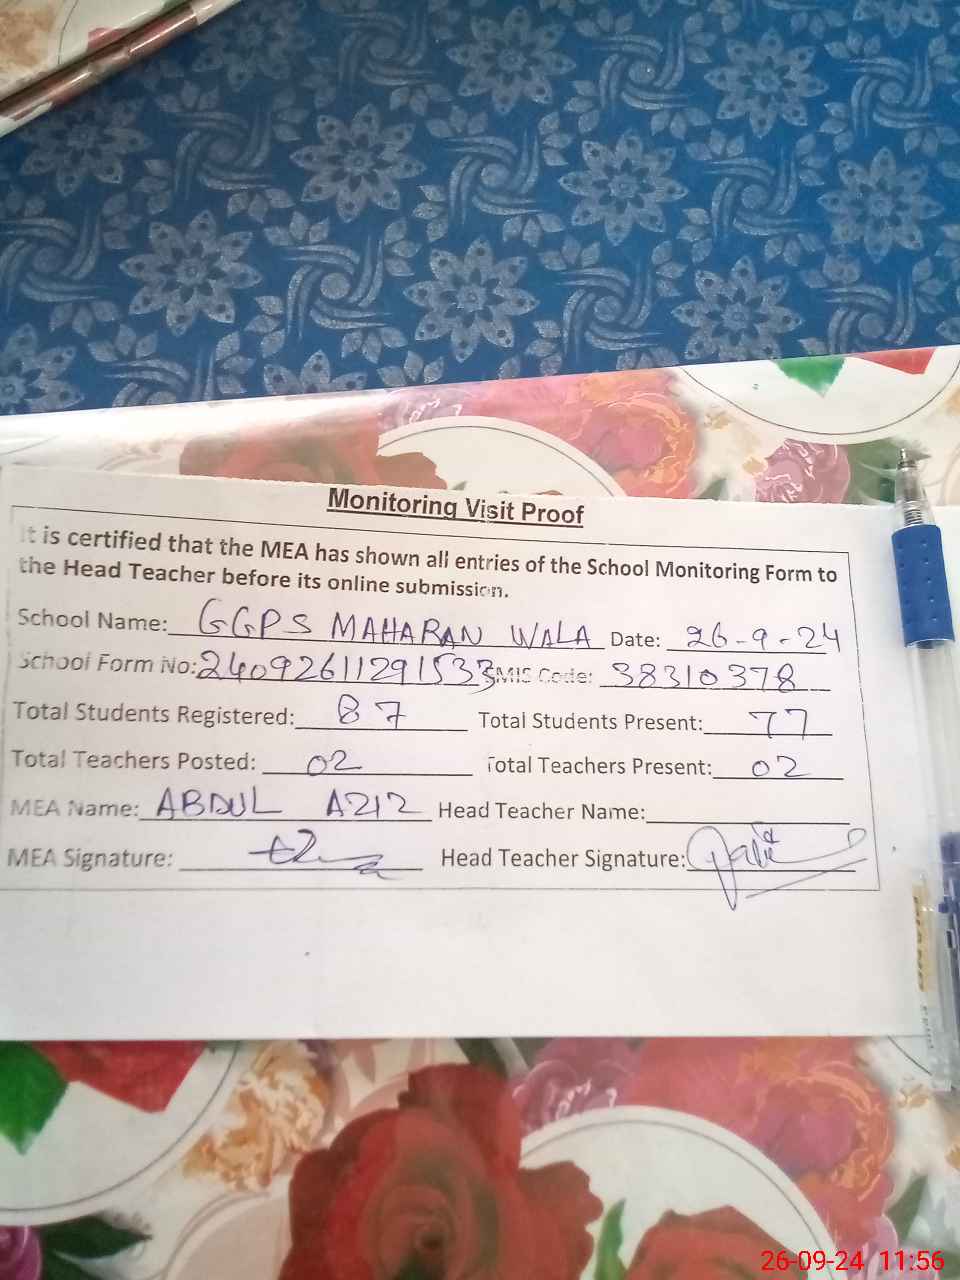 Monitoring Visit Proof
It is certified that the MEA has shown all entries of the School Monitoring Form to
the Head Teacher before its online submission.
School Name: GGPS MAHARAN WALA Date: 26-9-24
School Form No: 24092611291533 EMIS Code: 38310378
Total Students Registered: 87 Total Students Present: 77
Total Teachers Posted: 02 Total Teachers Present: 02
MEA Name: ABDUL AZIZ Head Teacher Name:
MEA Signature: Head Teacher Signature:
26-09-24 11:56